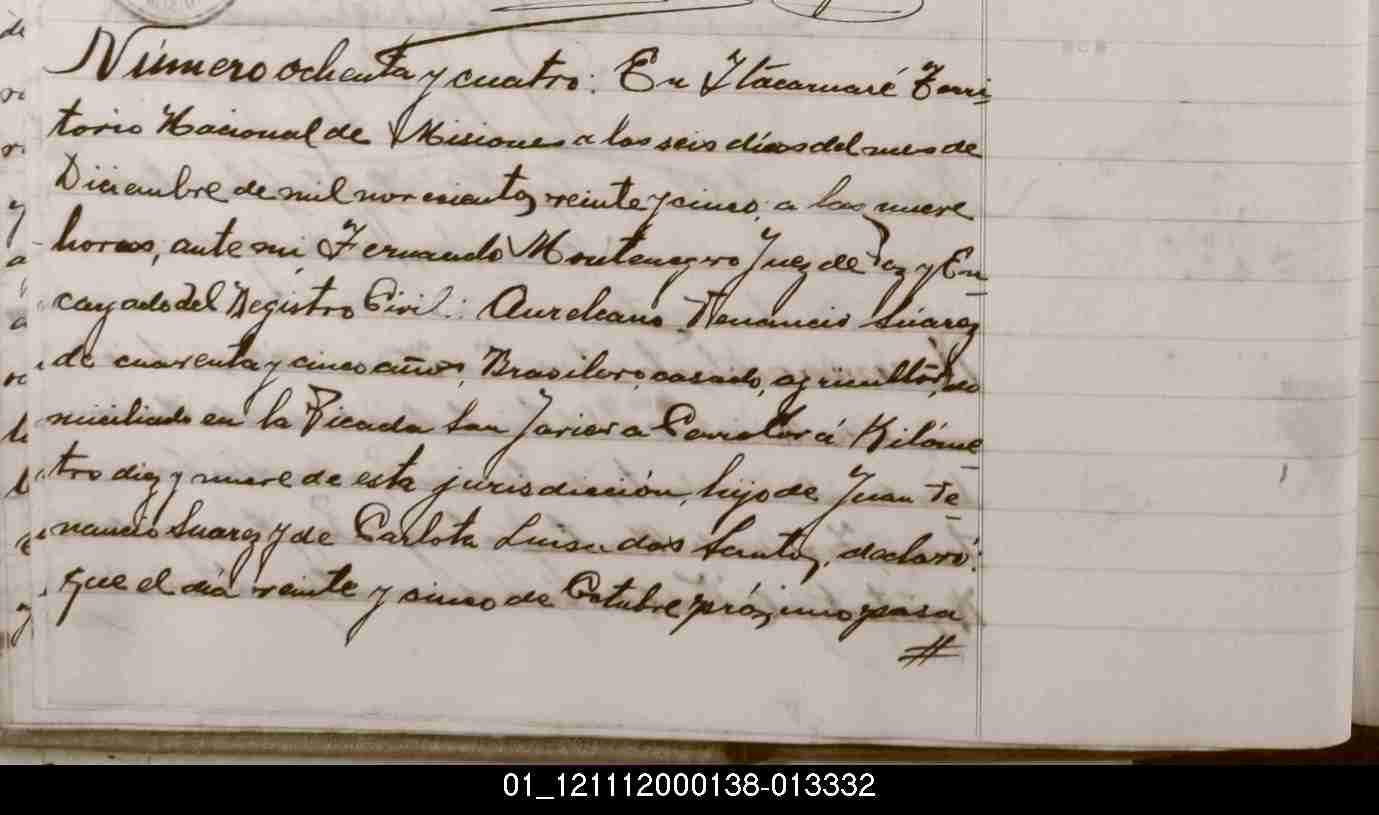 Número ochenta y cuatro: En Itacaruaré Terri
torio Nacional de Misiones a los seis días del mes de
Diciembre de mil novecientos veinte y cinco, a las nueve
horas, ante mi Fernando Montenegro Juez de Paz y En
cargado del Registro Civil: Aureleano Tenancio Súarez
de cuarenta y cinco años, Brasilero, casado, agricultór, do
miciliado en la Picada San Javier a Kilóme
tro diez y nueve de esta jurisdicción, hijo de Juan Te
nancio Suarez y de Carlota Luisa dos Santos, declaró:
que el día veinte y cinco de Octubre próximo pasa
#
01_121112000138-013332